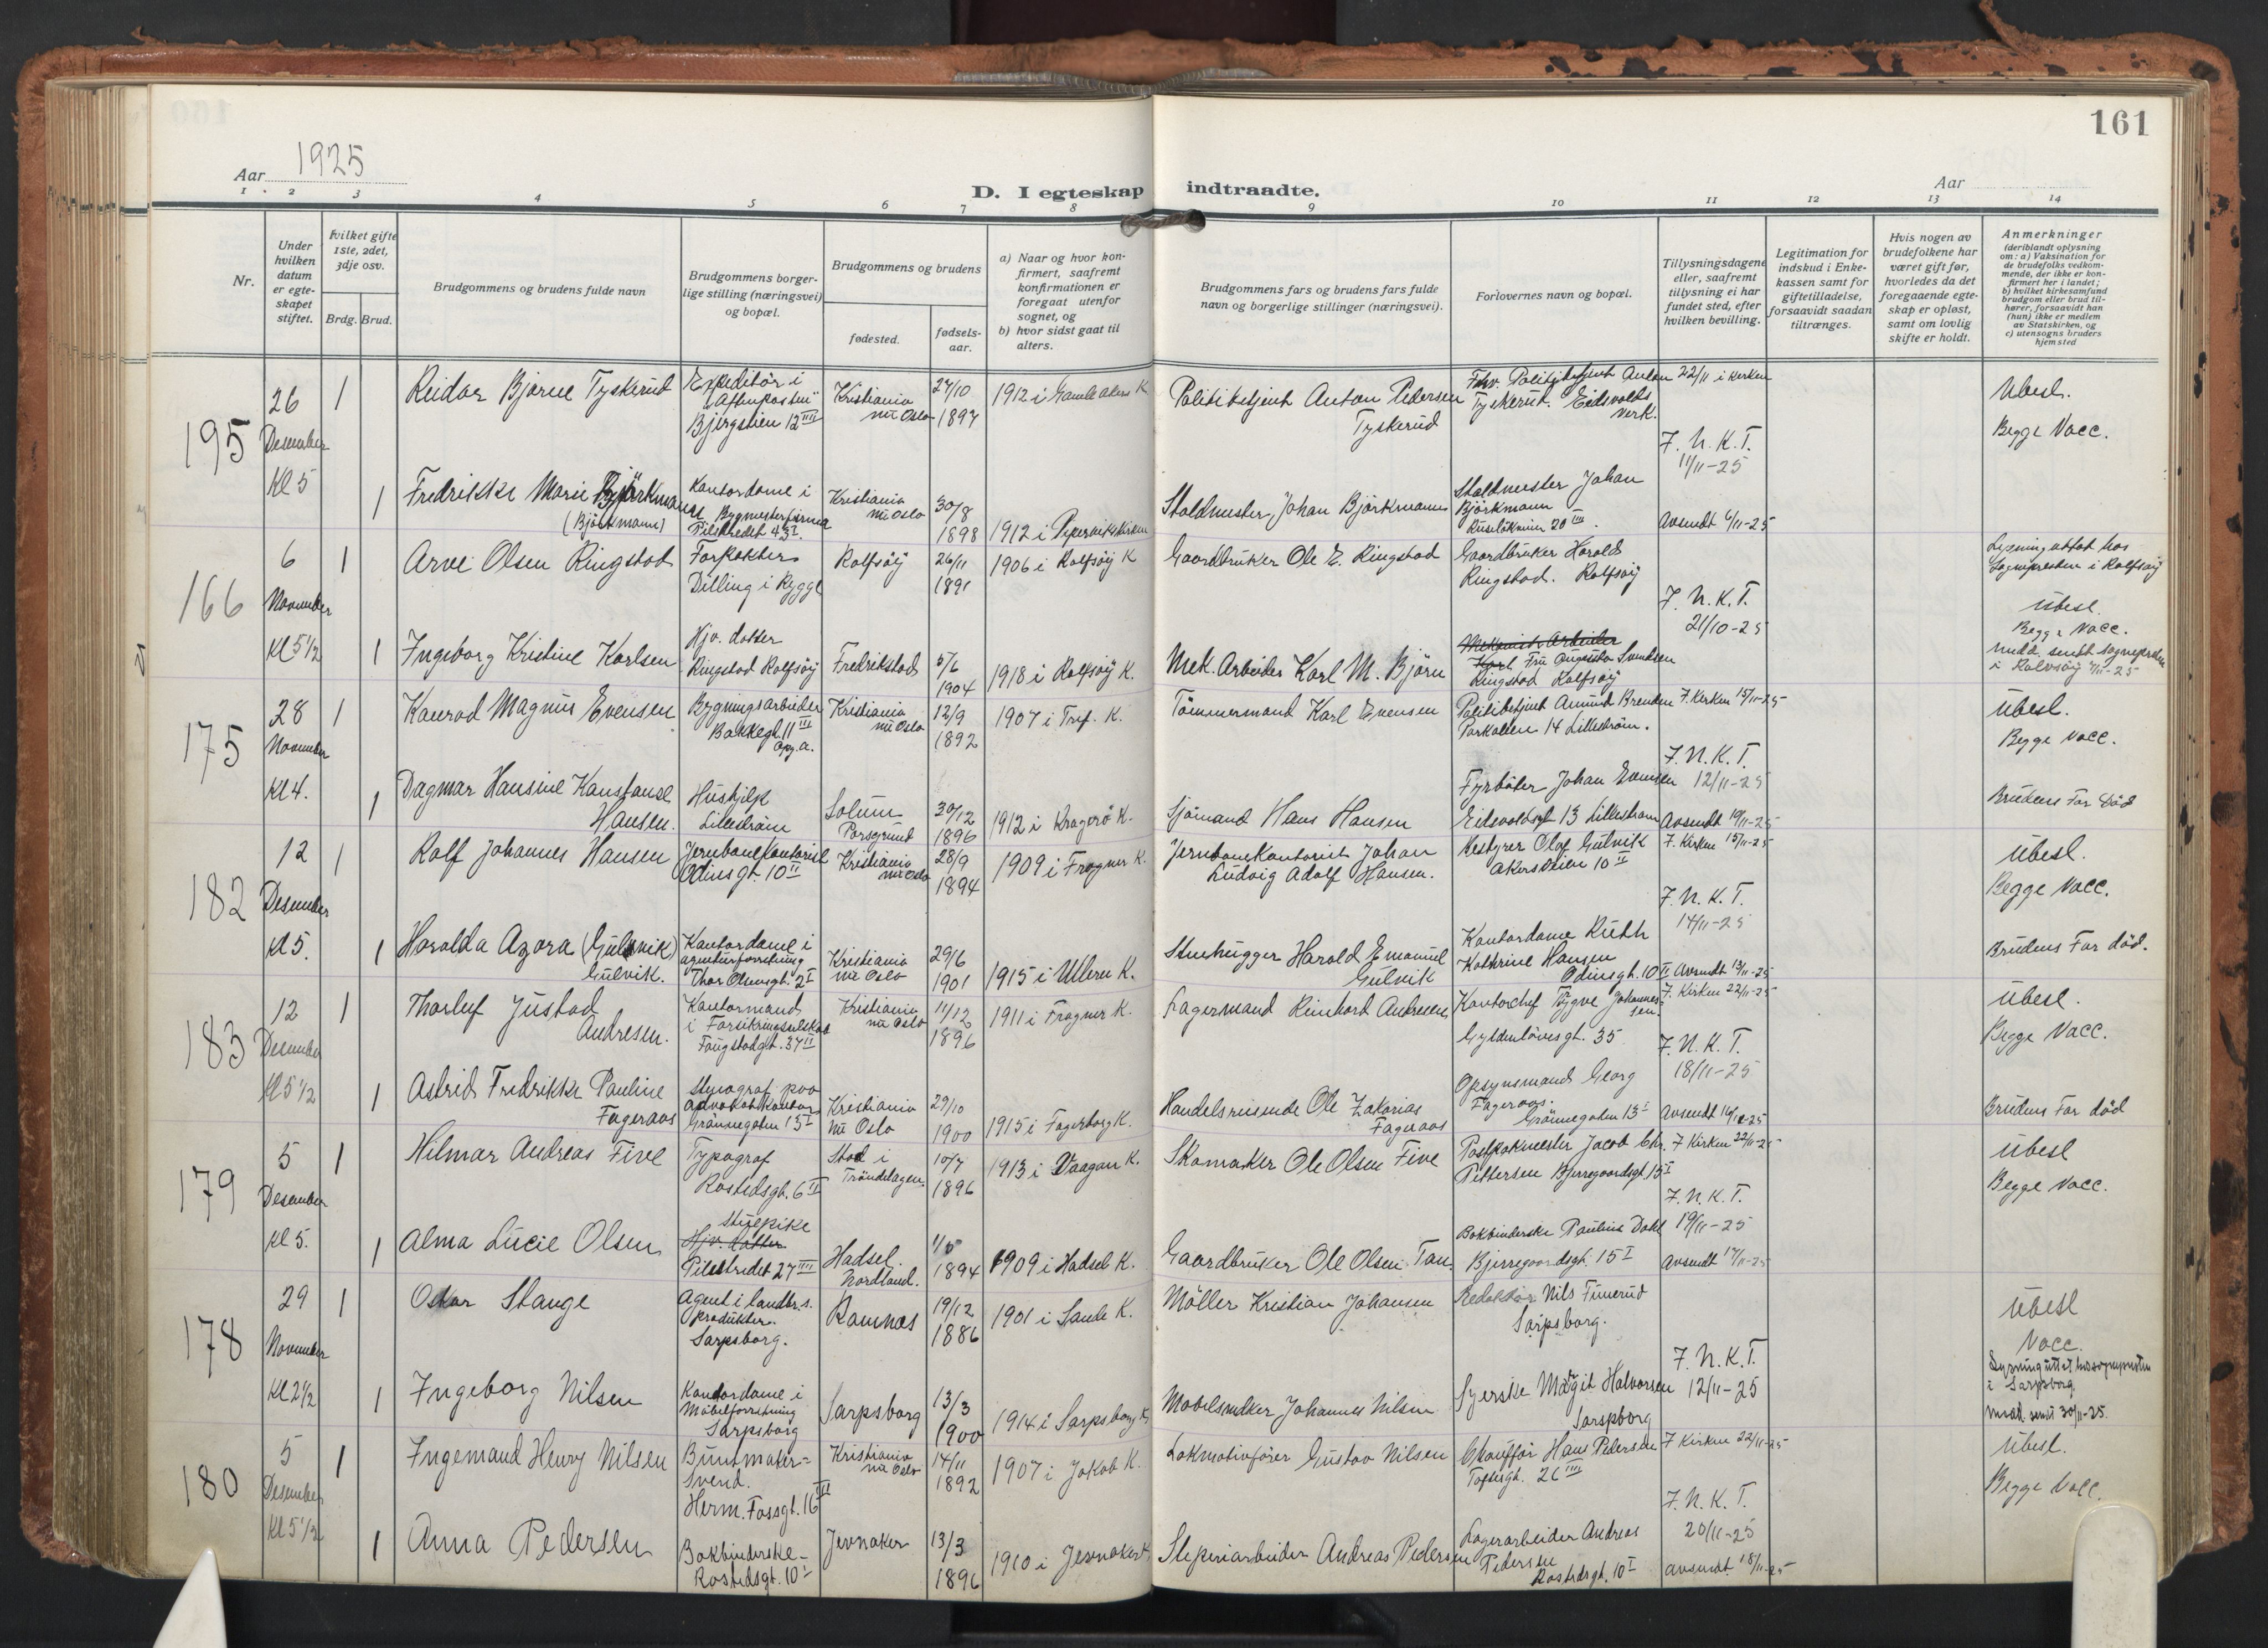 161
Aar 1925
D. I egteskap indtraadte.
Aar
1 2 3 4 5 6 7 8 9 10 11 12 13 14
Nr.
Under hvilken datum er egteskapet stiftet.
Hvilket gifte 1ste, 2det, 3dje osv.
Brdg. Brud.
Brudgommens og brudens fulde navn
Brudgommens borgerlige stilling (næringsvei) og bopæl.
Brudgommens og brudens
fødested.
fødselsaar.
a) Naar og hvor konfirmert, saafremt konfirmationen er foregaat utenfor sognet, og
b) hvor sidst gaat til alters.
Brudgommens fars og brudens fars fulde navn og borgerlige stillinger (næringsvei).
Forlovernes navn og bopæl.
Tillysningsdagene eller, saafremt tillysning ei har fundet sted, efter hvilken bevilling.
Legitimation for indskud i Enkekassen samt for giftetilladelse, forsaavidt saadan tiltrænges.
Hvis nogen av brudefolkene har været gift før, hvorledes da det foregaaende egteskap er opløst, samt om lovlig skifte er holdt.
Anmerkninger
(deriblandt oplysning om: a) Vaksination for de brudefolks vedkommende, der ikke er konfirmert her i landet; b) hvilket kirkesamfund brudgom eller brud tilhører, forsaavidt han (hun) ikke er medlem av Statskirken, og c) utensogns bruders hjemsted
195 26 Desember Kl 5
1 Reidar Bjarne Tyskerud
Expeditör i "Aftenposten" Bjergstien 12 IIII
Kristiania nu Oslo 27/10 1897
1912 i Gamle Akers K
Politibetjent Anton Pedersen Tyskerud
Fhv. Politibetjent Anton Tyskerud. Eidsvolds verk.
22/11 i kirken
F. N. K. T. 11/11-25
Ubesl.
Begge Vacc.
1 Fredrikke Marie Björkmann (Björkmann)
Kontordame i Bygmesterfirma Pilestredet 43 I.
Kristiania nu Oslo 30/8 1898
1912 i Piperviks Kirken
Staldmester Johan Björkmann
Staldmester Johan Björkmann
20 III.
Avsendt 6/11-25
166 6 November Kl 5 1/2
1 Arve Olsen Ringstad
Forpakter Dilling i Rygge
Rolfsöy 26/11 1891
1906 i Rolfsöy K
Gaardbruker Ole E. Ringstad
Gaardbruker Harald Ringstad. Rolfsöy
F. N. K. T. 21/10-25
Lysning uttat hos Sognepresten i Rolfsöy
Ubesl.
Begge Vacc.
1 Ingeborg Kristine Karlsen
Hjv. datter Ringstad Rolfsöy
Fredrikstad 5/6 1904
1918 i Rolfsöy K.
Mek. Arbeider Karl M. Björn
Mekanisk Arbeider Karl Fru Augusta Svendsen Ringstad Rolfsöy
medd. sendt sognepresten i Rolvsöy 7/11-25
175 28 November Kl 4.
1 Konrad Magnus Evensen
Bygningsarbeider Bakkegt. 11 III opg. a.
Kristiania nu Oslo 12/9 1892
1907 i Tref. K.
Tömmermand Karl Evensen
Politibetjent Amund Brenden Parkalleen 14 Lilleström.
F. Kirken 15/11-25
F. N. K. T. 12/11-25
Ubesl.
Begge Vacc.
1 Dagmar Hansine Konstanse Hansen.
Hushjelp Lilleström
Solum Porsgrund 30/12 1896
1912 i Kragerö K.
Sjömand Hans Hansen
Fyrböter Johan Evensen Eidsvoldsgt 13 Lilleström
Avsendt 19/11-25
Brudens Far Död
182 12 Desember Kl 5.
1 Rolf Johannes Hansen
Jernbanekontorist Odinsgt. 10 II
Kristiania nu Oslo 28/9 1894
1909 i Frogner K.
Jernbanekontorist Johan Ludvig Adolf Hansen.
Bestyrer Olaf Gulvik Akersveien 10 II
F. Kirken 15/11-25
F. N. K. T. 14/11-25
Ubesl.
Begge Vacc.
1 Haralda Azora (Gulvik) Gulvik.
Kontordame i agenturforretning Thor Olsensgt. 2 I
Kristiania nu Oslo 29/6 1901
1915 i Ullern K.
Stenhugger Harald Emanuel Gulvik
Kontordame Ruth Kathrine Hansen Odinsgt. 10 II
Avsendt 13/11-25
Brudens Far död.
183 12 Desember Kl 5 1/2
1 Thorleif Justad Andresen.
Kontormand i Forsikringsselskab Faugstadgt. 37 II
Kristiania nu Oslo 11/12 1896
1911 i Frogner K.
Lagermand Reinhard Andresen
Kontorchef Trygve Johannessen. Gyldenlövesgt. 35
F. Kirken 22/11-25
F. N. K. T. 18/11-25
Ubesl.
Begge Vacc.
1 Astrid Fredrikke Pauline Fageraas
Stenograf paa Advokatkontor Grönnegaten 13 I
Kristiania nu Oslo 29/10 1900
1915 i Fagerborg K.
Handelsreisende Ole Zakarias Fageraas
Opsynsmand Georg Fageraas. Grönnegaten 13 I
Avsendt 16/11-25
Brudens Far död
179 5 Desember Kl 5.
1 Hilmar Andreas Five
Typograf Rostedsgt. 6 II
Stod i Tröndelagen. 10/7 1896
1913 i Vaagan K.
Skomaker Ole Olsen Five
Postpakmester Jacob Chr. Pettersen Bjerregaardsgt. 15 I
F Kirken 22/11-25
F. N. K. T. 19/11-25
Ubesl
Begge Vacc.
1 Alma Lucie Olsen
Stuepike Hjv. datter Pilestredet 27 IIII
Hadsel. Nordland. 1/5 1894
1909 i Hadsel K.
Gaardbruker Ole Olsen Tan.
Bokbinderske Pauline Dahl Bjerregaardsgt. 15 I
Avsendt 17/11-25
178 29 November Kl 2 1/2
1 Oskar Stange
Agent i landbr.s. produkter. Sarpsborg.
Ramnes 19/12 1886
1901 i Sande K.
Möller Kristian Johansen
Redaktör Nils Finnerud Sarpsborg.
F. N. K. T. 12/11-25
Ubesl
Vacc.
Lysning uttat hos sognepresten i Sarpsborg
medd. sendt 30/11-25.
1 Ingeborg Nilsen
Kontordame i Möbelforretning Sarpsborg
Sarpsborg 13/3 1900
1914 i Sarpsborg K.
Möbelsnekker Johannes Nilsen
Syerske Magit Halvorsen Sarpsborg
180 5 Desember Kl 5 1/2
1 Ingemand Henry Nilsen
Buntmaker= Svend. Herm. Fossgt. 16 III
Kristiania nu Oslo 14/11 1892
1907 i Jakob K.
Lokmotivförer Gustav Nilsen
Chaufför Hans Pedersen Toftesgt. 26 III
F Kirken 22/11-25
F. N. K. T. 20/11-25
Ubesl.
Begge Vacc.
1 Anna Pedersen
Bokbinderske - Rostedsgt. 10 I
Jevnaker 13/3 1896
1910 i Jevnaker K.
Sliperiarbeider Andreas Pedersen
Lagerarbeider Andreas Pedersen Rostedsgt. 10 I
Avsendt 18/11-25